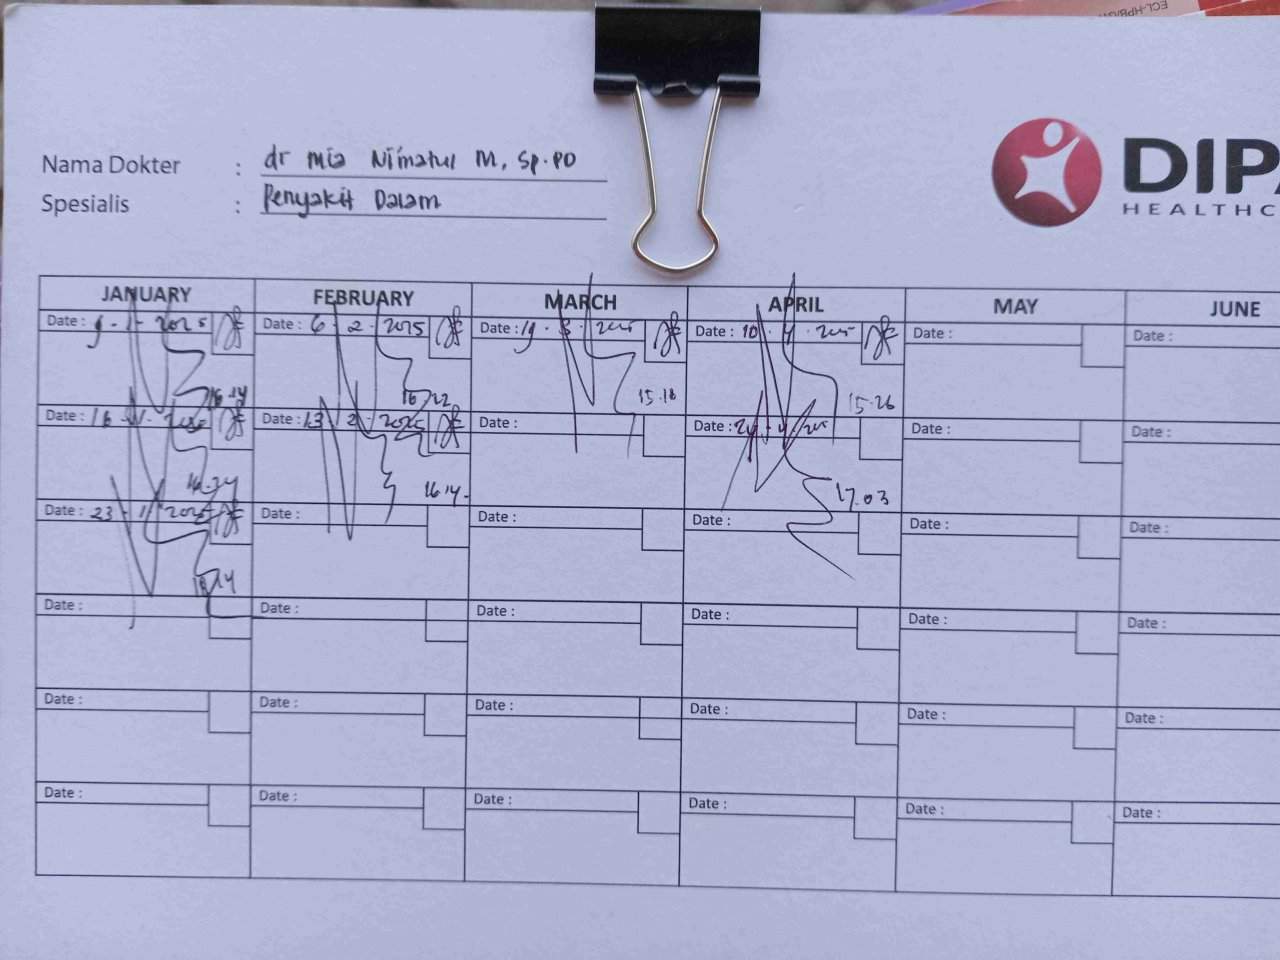 ECL-HPB/
Nama Dokter : dr Mia Ni'matul M, Sp.PD
Spesialis : Penyakit Dalam
DIPA
HEALTHC
JANUARY FEBRUARY MARCH APRIL MAY JUNE
Date : 9 - 1 - 2025 Date : 6 . 2 . 2025 Date : 19 . 3 . 2025 Date : 10 . 4 . 2025 Date : Date :
16.14 16.22 15.18 15.26
Date : 16 - 1 - 2025 Date : 13 . 2 . 2025 Date : Date : 24 - 4 - 2025 Date : Date :
16.24 16.14. 17.03
Date : 23 - 1 - 2025 Date : Date : Date : Date : Date :
Date : Date : Date : Date : Date : Date :
Date : Date : Date : Date : Date : Date :
Date : Date : Date : Date : Date : Date :